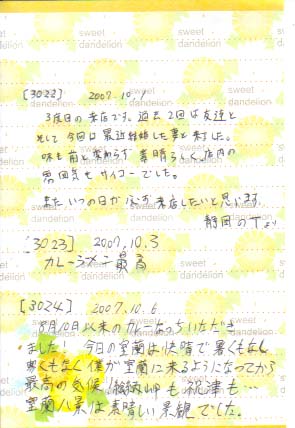 sweet dandelion
[3022] 2007.10.1
3度目の来店です。過去2回は友達と
そして今回は最近結婚した妻と来ました。
味も前と変わらず素晴らしく、店内の
雰囲気もサイコーでした。
また いつの日か 必ず 来店したいと思います。
静岡の
[3023] 2007.10.3
カレーラーメン 最高
[3024] 2007.10.6
8月10日以来のカレー いただき
ました! 今日の室蘭は快晴で暑くもなし
寒くもなく 僕が室蘭に来るようになってから
最高の気候! 絵鞆岬も祝津も…
室蘭八景は素晴しい景観でした。